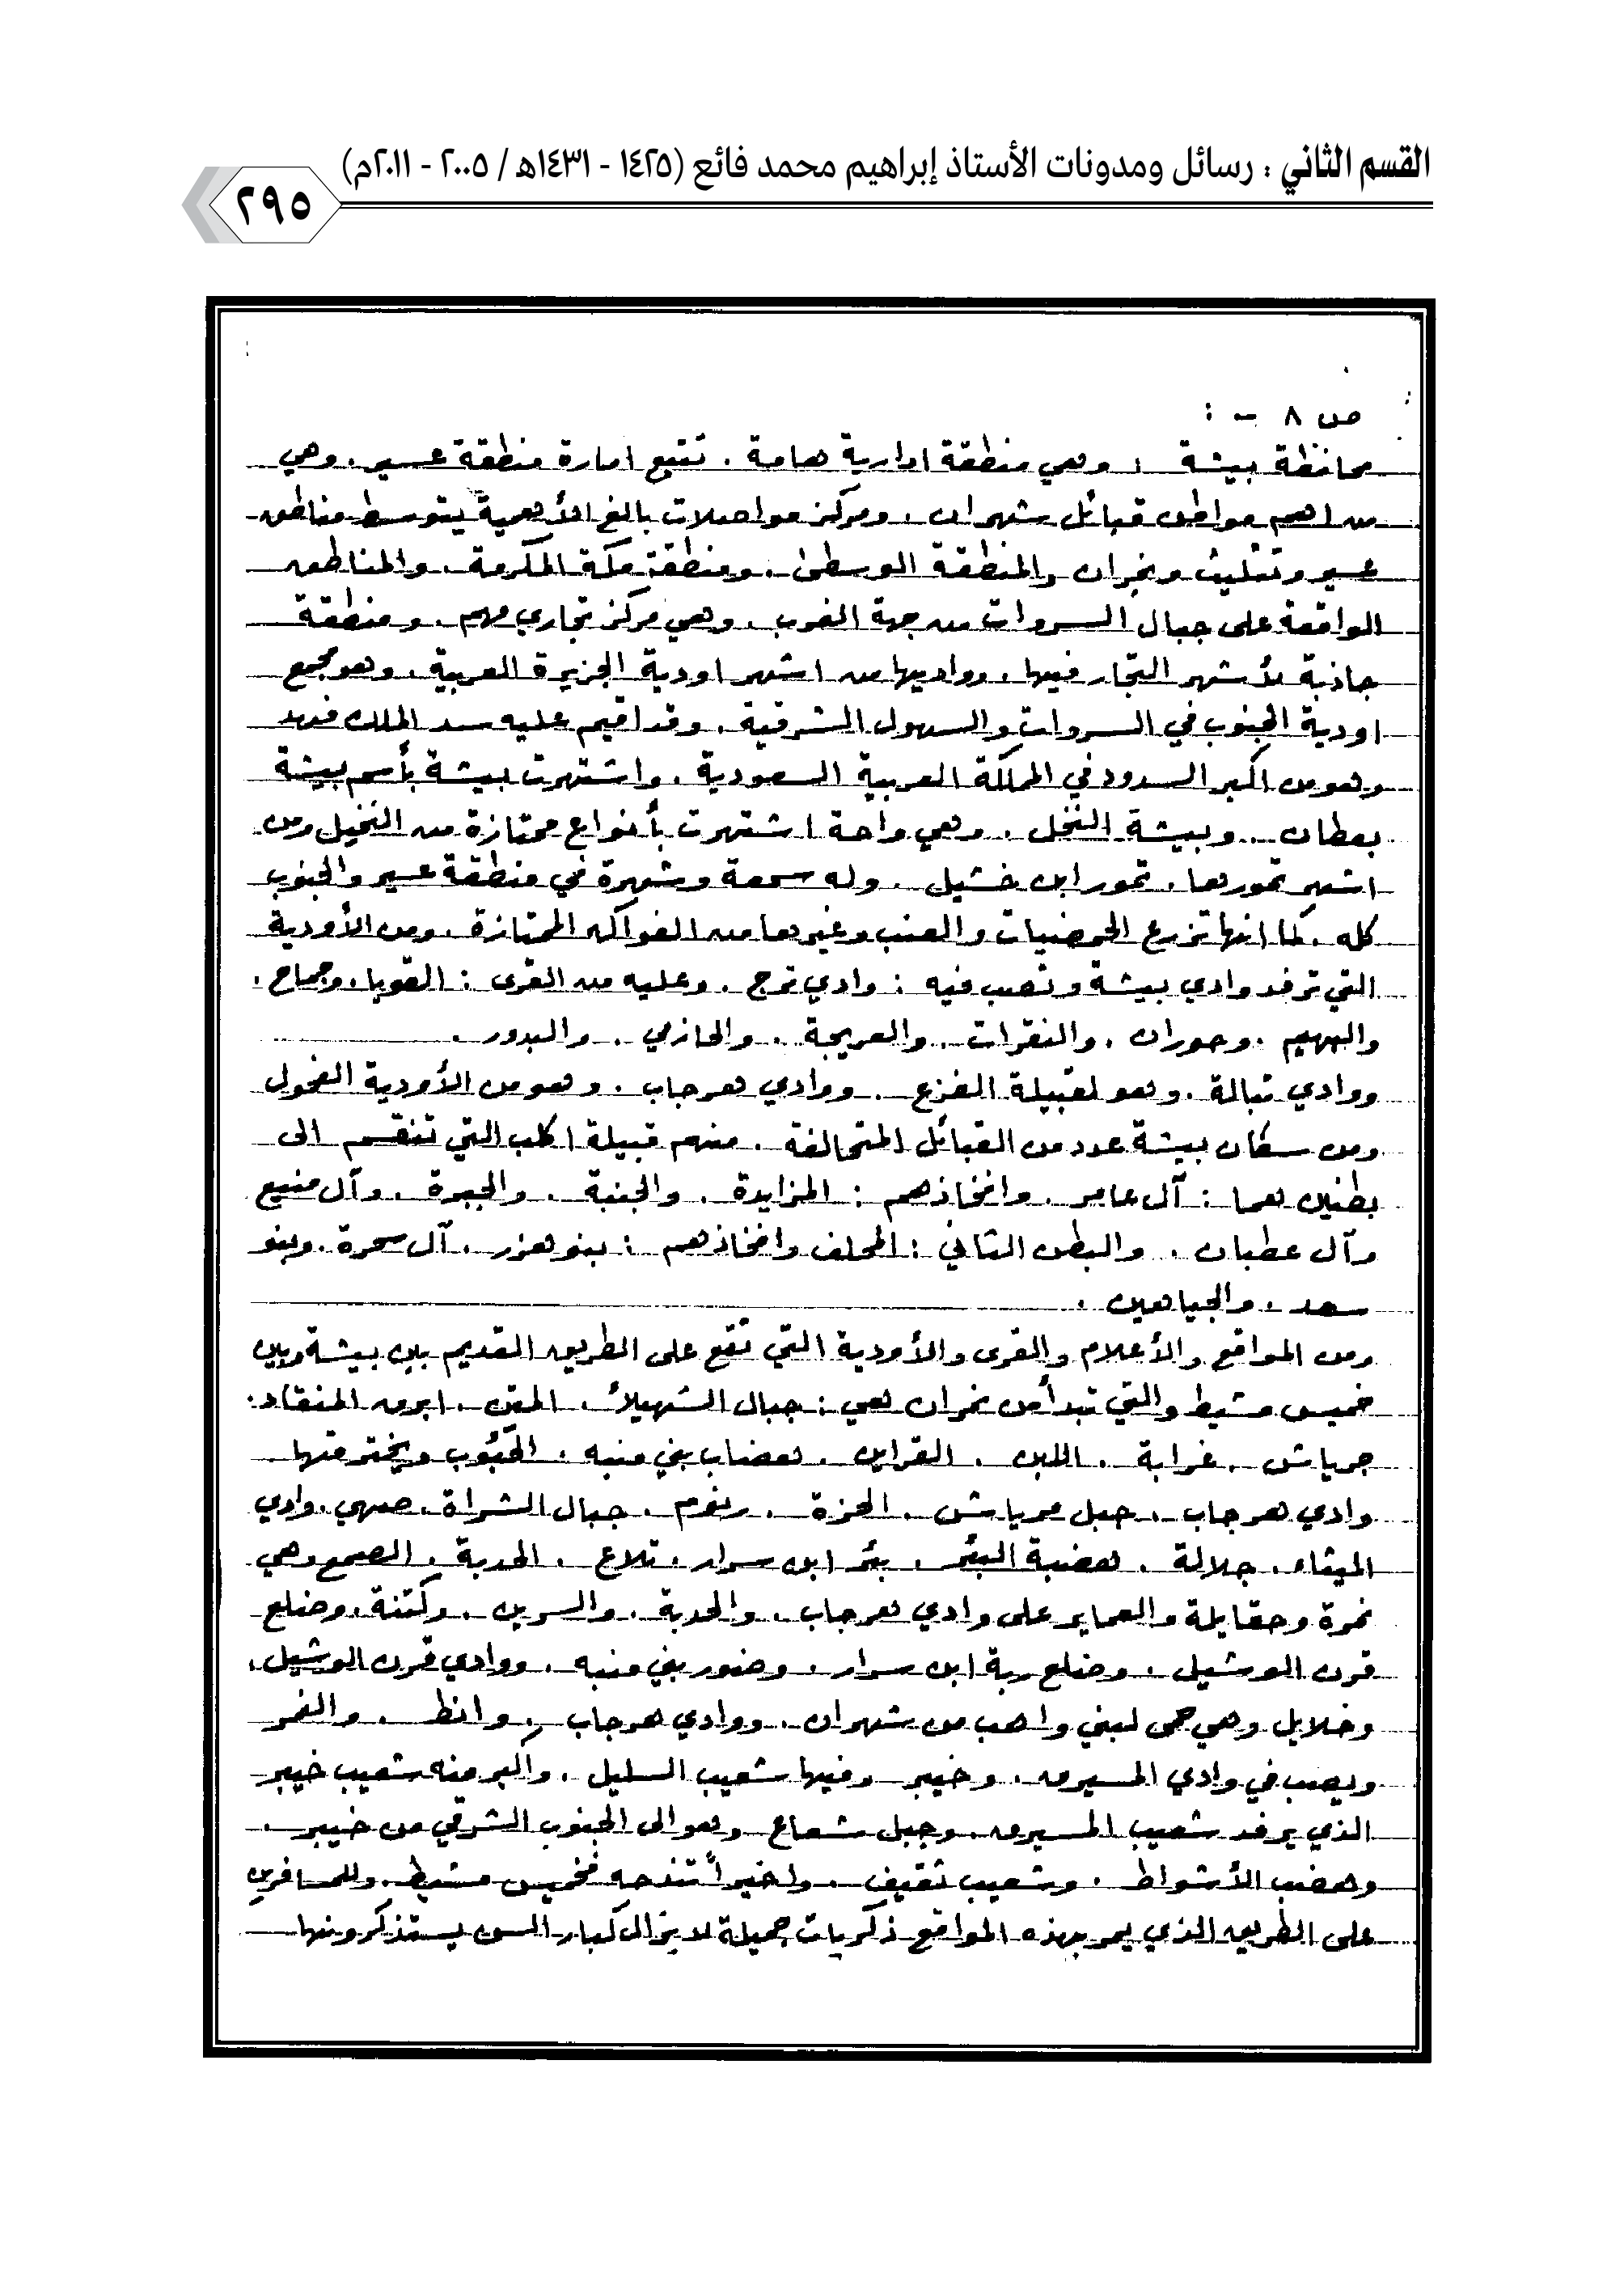 القسم الثاني : رسائل ومدونات الأستاذ إبراهيم محمد فائع (١٤٢٥ - ١٤٣١هـ / ٢٠٠٥ - ٢٠١١م)
٢٩٥
ص ٨ - :
محافظة بيشة : وهي منطقة ادارية هامة . تتبع امارة منطقة عسير . وهي
من اهم مواطن قبائل شهران . ومركز مواصلات بالغ الأهمية يتوسط مناطق
عسير وتثليث ونجران والمنطقة الوسطى . ومنطقة مكة المكرمة . والمناطق
الواقعة على جبال السروات من جهة الغرب . وهي مركز تجاري مهم . ومنطقة
جاذبة لأشهر التجار فيها . وواديها من اشهر اودية الجزيرة العربية . وهو مجمع
اودية الجنوب في السروات والسهول الشرقية . وقد اقيم عليه سد الملك فهد
وهو من اكبر السدود في المملكة العربية السعودية . واشتهرت بيشة بأسم بيشة
بعطان .. وبيشة النخل . وهي واحة اشتهرت بأنواع ممتازة من النخيل ومن
اشهر تمورها . تمور ابن خشيل . وله سمعة وشهرة في منطقة عسير والجنوب
كله . كما انها تزرع الحمضيات والعنب وغيرها من الفواكه الممتازة . ومن الأودية
التي ترفد وادي بيشة وتصب فيه : وادي ترج . وعليه من القرى : القوبا . وجماح .
والبهيم . وحوران . والنقرات . والعريجة . والحازمي . والبدور .
ووادي تبالة . وهو لقبيلة الفزع . ووادي هرجاب . وهو من الأودية الفحول
ومن سكان بيشة عدد من القبائل المتحالفة . منهم قبيلة اكلب التي تنقسم الى
بطنين هما : آل عامر . وافخاذهم : المزايدة . والجنبة . والجبرة . وآل منيع
وآل عطبان . والبطن الثاني : المحلف وافخاذهم : بنو هزر . آل سحرة . وبنو
سعد . والجياهين .
ومن المواقع والأعلام والقرى والأودية التي تقع على الطريق القديم بين بيشة وبين
خميس مشيط والتي تبدأ من نمران هي : جبال الشهيلاء . المقن . ابرق المنقاد .
جرياش . غرابة . اللبن . القراين . هضاب بني منبه . الحبوب ويخترقها
وادي هرجاب . جبل عرياش . الحزة . رنوم . جبال الشراة . صهي . وادي
الميثاء . جلالة . هضبة البئر . بئر ابن سرار . تلاع . الحدبة . الصمع وهي
نمرة وحقايلة والعماير على وادي هرجاب . والحدبة . والسرين . وكتنة . وضلع
قرن الوشيل . وضلع ربة ابن سرار . وضنور بني منبه . ووادي قرن الوشيل .
وخلايل وهي حمى لبني واهب من شهران . ووادي هرجاب . وانظ . والغمر
ويصب في وادي المسيرق . وخيبر وفيها شعيب السليل . والبر منه شعيب خيبر
الذي يرفد شعيب المسيرق . وجبل شعاع وهو الى الجنوب الشرقي من خيبر .
وهضب الأشواط . وشعيب ثقيف . واخيراً تندحه فخميس مشيط . وللمسافرين
على الطريق الذي يمر بهذه المواقع ذكريات جميلة لا يزال كبار السن يستذكرونها